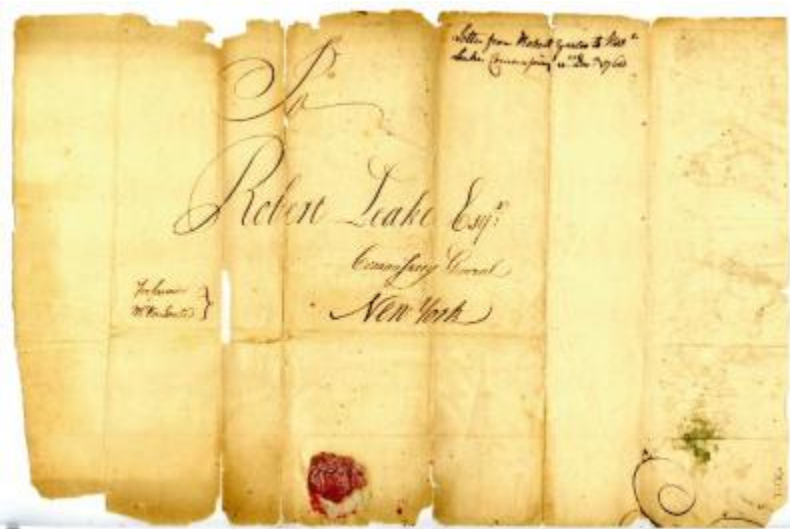 Letter from Robert to
Leake Commissary Decr 1760
To
Robert Leake Esqr
Commissary General
New York